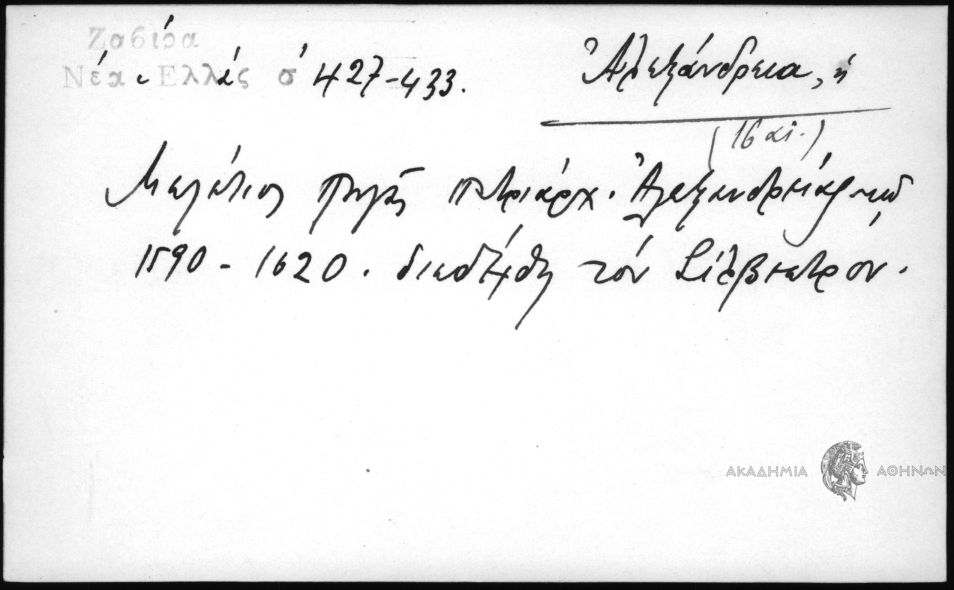 Ζαβίρα
Νέα Ἑλλάς σ 427-433.
Ἀλεξάνδρεια, ἡ
(16 αἰ.)
Μελέτιος Πηγᾶς πατριάρχ. Ἀλεξανδρείας
1590 - 1620. διεδέχθη τόν Σίλβεστρον.
ΑΚΑΔΗΜΙΑ ΑΘΗΝΩΝ